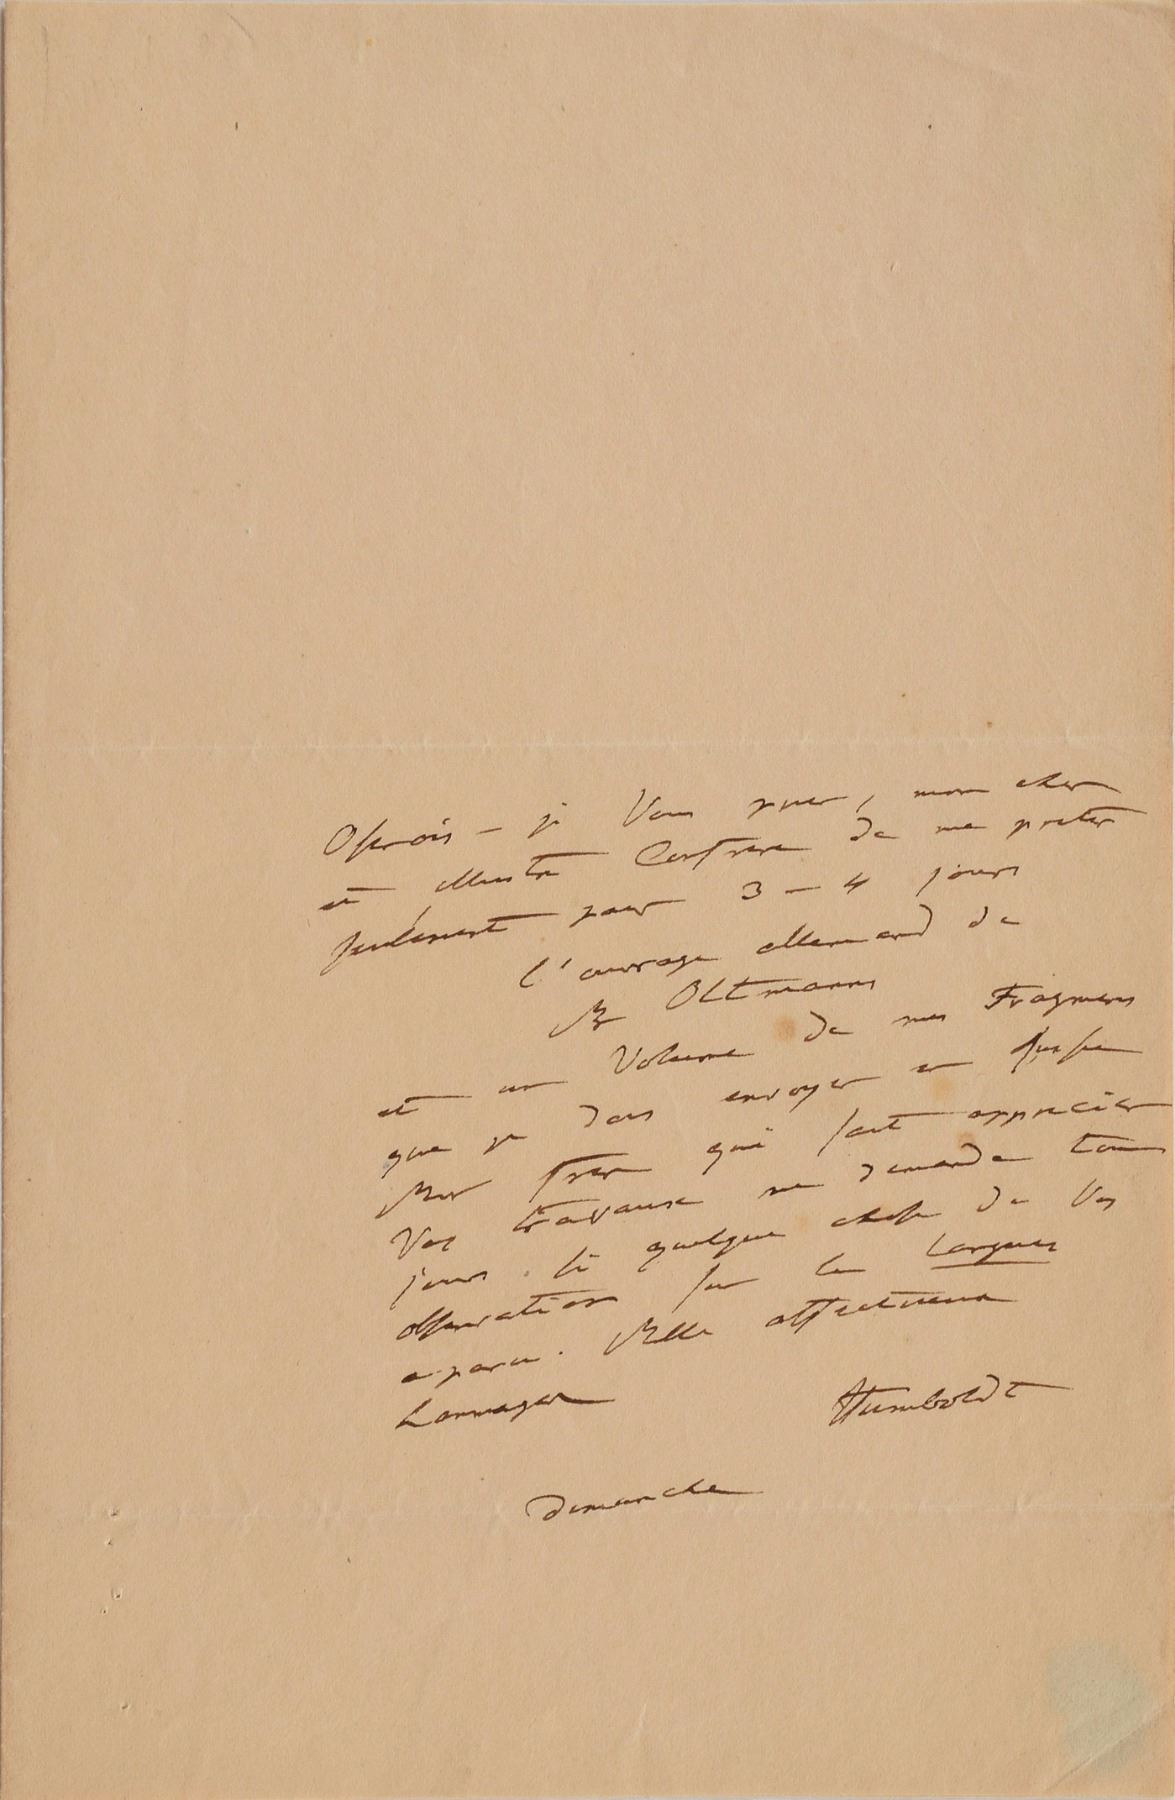 Oserois-je Vous prier, mon cher
et illustre Confrere de me preter
seulement pour 3 – 4 jours
l'ouvrage allemand de
Mr Oltmanns
et un Volume de mes Fragmens
que je dois envoyer en Russie
Mon frere qui sait apprecier
Vos travaux me demande tous
jours si quelque chose de Vos
observations sur les Langues
a paru. Mille affectueux
hommages
Humboldt
Dimanche